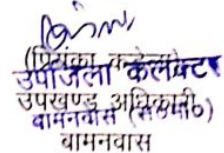 (प्रियंका
उपजिला कलेक्टर
उपखण्ड अधिकारी
बामनवास (स०मा०)
बामनवास